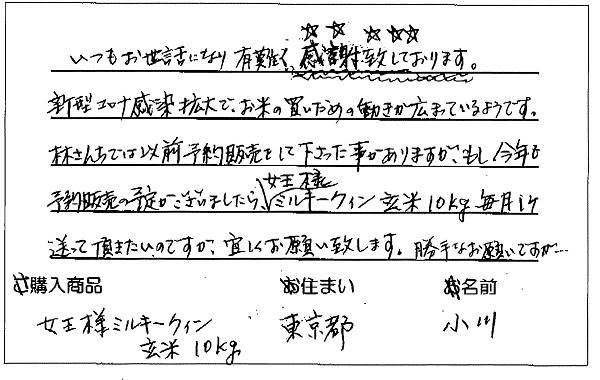 いつもお世話になり有難く、感謝致しております。
新型コロナ感染拡大で、お米の買いだめの動きが広まっているようです。
林さんちでは以前予約販売をして下さった事がありますが、もし今年も
予約販売の予定がございましたら、女王様ミルキークィン玄米10kg毎月1ヶ
送って頂きたいのですが、宜しくお願い致します。勝手なお願いですが…
購入商品 お住まい お名前
女王様ミルキークィン 東京都 小川
玄米10kg